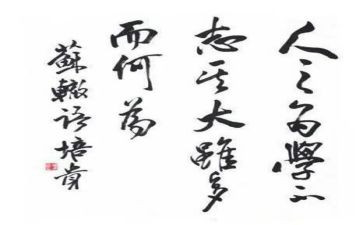 人之為學不
志其大雖多
而何為
蘇轍語培